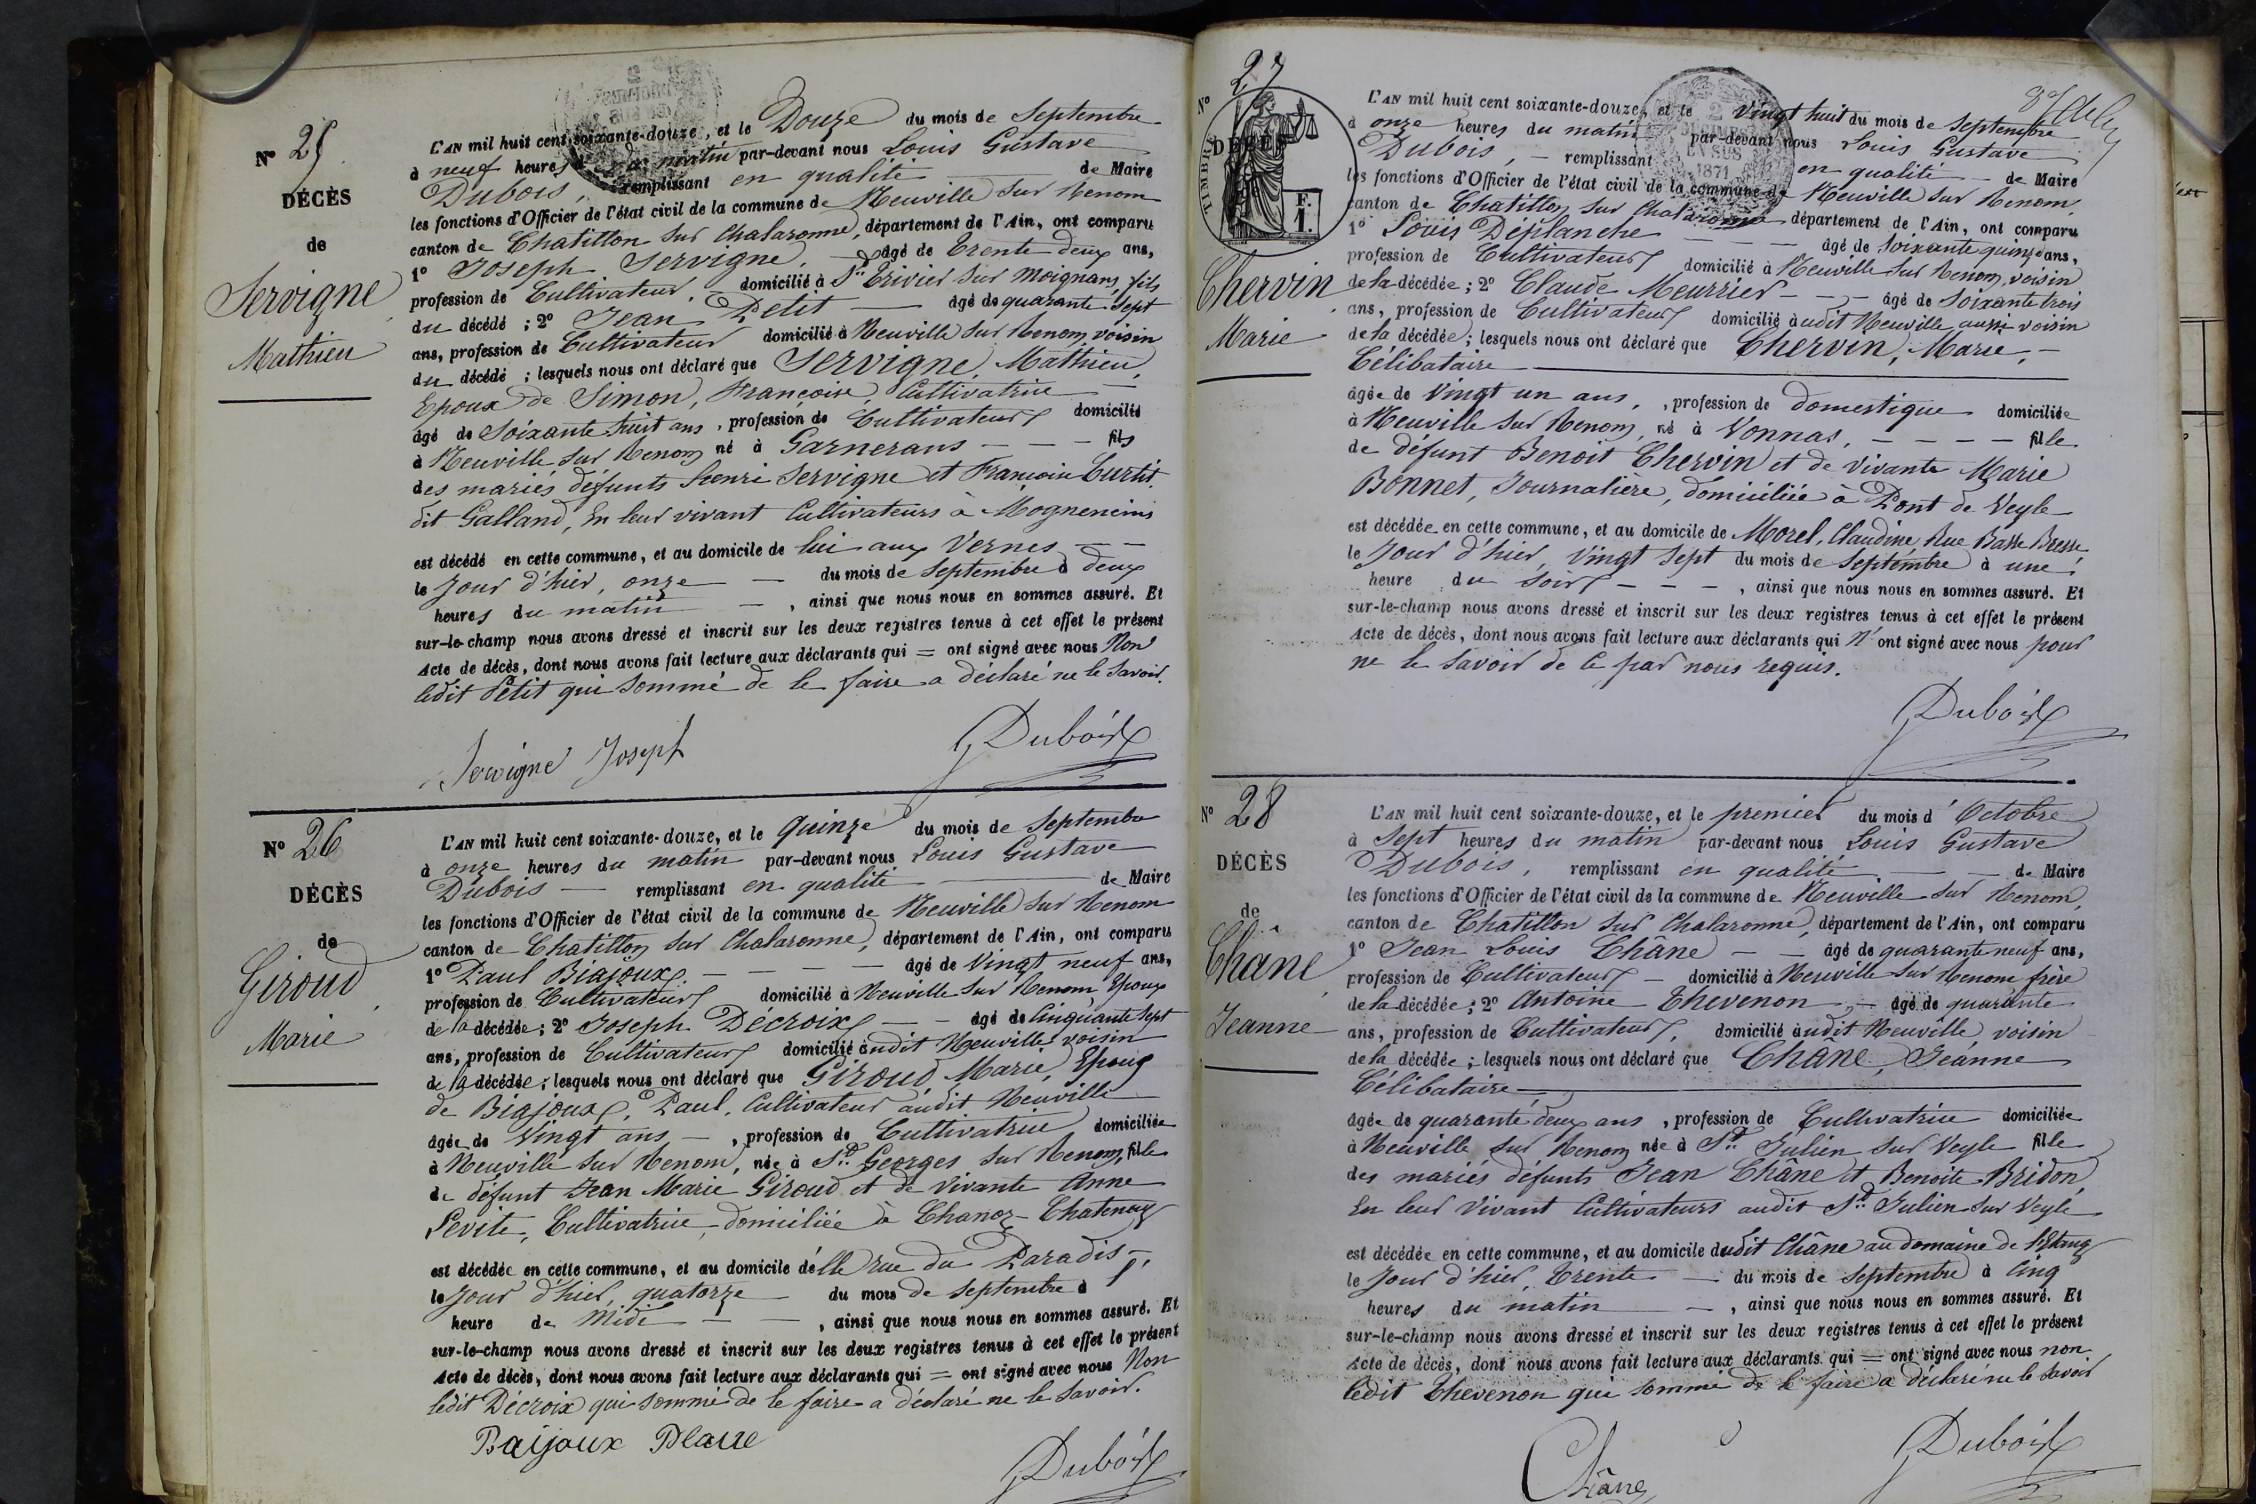 Nº 25
DÉCÈS
de
Servigne
Mathieu
L'AN mil huit cent soixante-douze, et le Douze du mois de Septembre
à neuf heures du matin par-devant nous Louis Gustave
Dubois, remplissant en qualité de Maire
les fonctions d'Officier de l'état civil de la commune de Neuville sur Renom
canton de Chatillon sur Chalaronne, département de l'Ain, ont comparu
1º Joseph Servigne, âgé de trente deux ans,
profession de Cultivateur, domicilié à St Trivier sur Moignans, fils
du décédé ; 2º Jean Petit âgé de quarante sept
ans, profession de Cultivateur domicilié à Neuville sur Renom, voisin
du décédé ; lesquels nous ont déclaré que Servigne, Mathieu,
Epoux de Simon, Françoise, Cultivatrice
âgé de Soixante huit ans, profession de Cultivateur domicilié
à Neuville sur Renom né à Garnerans - - - fils
des mariés défunts henri Servigne et Francoise Curtit
dit Galland, En leur vivant Cultivateurs à Mogneneins
est décédé en cette commune, et au domicile de lui aux Vernes
le Jour d'hier, onze du mois de Septembre à deux
heures du matin, ainsi que nous nous en sommes assuré. Et
sur-le-champ nous avons dressé et inscrit sur les deux registres tenus à cet effet le présent
Acte de décès, dont nous avons fait lecture aux déclarants qui = ont signé avec nous Non
ledit Petit qui sommé de le faire a déclaré ne le savoir.
Servigne Joseph GDubois
Nº 26
DÉCÈS
de
Giroud
Marie
L'AN mil huit cent soixante-douze, et le quinze du mois de Septembre
à onze heures du matin par-devant nous Louis Gustave
Dubois remplissant en qualité de Maire
les fonctions d'Officier de l'état civil de la commune de Neuville sur Renom
canton de Chatillon sur Chalaronne, département de l'Ain, ont comparu
1º Paul Biajoux - - - - âgé de Vingt neuf ans,
profession de Cultivateur domicilié à Neuville sur Renom Epoux
de la décédée ; 2º Joseph Décroix - - âgé de Cinquante sept
ans, profession de Cultivateur domicilié audit Neuville voisin
de la décédée ; lesquels nous ont déclaré que Giroud, Marie, Epouse
de Biajoux, Paul, Cultivateur audit Neuville
âgée de Vingt ans -, profession de Cultivatrice domiciliée
à Neuville sur Renom, née à St Georges sur Renom, fille
de défunt Jean Marie Giroud et de vivante Anne
Levite, Cultivatrice, domiciliée à Chanoz-Chatenay
est décédée en cette commune, et au domicile d'elle rue du Paradis -,
le Jour d'hier, quatorze du mois de Septembre à
heure de Midi - -, ainsi que nous nous en sommes assuré. Et
sur-le-champ nous avons dressé et inscrit sur les deux registres tenus à cet effet le présent
Acte de décès, dont nous avons fait lecture aux déclarants qui = ont signé avec nous Non
ledit Décroix qui sommé de le faire a déclaré ne le savoir.
Baijoux
GDubois
Nº 27
TIMBRE
F. 1.
DÉCÈS
Chervin
Marie
1871
L'AN mil huit cent soixante-douze, et le Vingt huit du mois de Septembre
à onze heures du matin par-devant nous Louis Gustave
Dubois, - remplissant en qualité - de Maire
les fonctions d'Officier de l'état civil de la commune de Neuville sur Renom,
canton de Chatillon sur Chalaronne département de l'Ain, ont comparu
1º Louis Déplanche âgé de Soixante quinze ans,
profession de Cultivateur domicilié à Neuville sur Renom, voisin
de la décédée ; 2º Claude Meurrier - - - âgé de Soixante trois
ans, profession de Cultivateur domicilié audit Neuville aussi voisin
de la décédée ; lesquels nous ont déclaré que Chervin, Marie, -
Célibataire
âgée de Vingt un ans, , profession de domestique domiciliée
à Neuville sur Renom, né à Vonnas, - - - - fille
de défunt Benoit Chervin et de vivante Marie
Bonnet, Journalière, domiciliée à Pont de Veyle
est décédée en cette commune, et au domicile de Morel, Claudine Rue Basse Bresse
le Jour d'hier, Vingt sept du mois de Septembre à une
heure du soir - - -, ainsi que nous nous en sommes assuré. Et
sur-le-champ nous avons dressé et inscrit sur les deux registres tenus à cet effet le présent
Acte de décès, dont nous avons fait lecture aux déclarants qui n'ont signé avec nous pour
ne le savoir de ce par nous requis.
GDubois
Nº 28
DÉCÈS
de
Châne
Jeanne
L'AN mil huit cent soixante-douze, et le premier du mois d'Octobre
à Sept heures du matin par-devant nous Louis Gustave
Dubois, remplissant en qualité de Maire
les fonctions d'Officier de l'état civil de la commune de Neuville sur Renom,
canton de Chatillon sur Chalaronne, département de l'Ain, ont comparu
1º Jean Louis Chane - - âgé de quarante neuf ans,
profession de Cultivateur - domicilié à Neuville sur Renom frère
de la décédée ; 2º Antoine Thevenon, - âgé de quarante
ans, profession de Cultivateur, domicilié audit Neuville, voisin
de la décédée ; lesquels nous ont déclaré que Chane, Jeanne
Célibataire
âgée de quarante deux ans, profession de Cultivatrice domiciliée
à Neuville sur Renom née à St Julien sur Veyle fille
des mariés défunts Jean Châne et Benoite Bridon,
En leur Vivant Cultivateurs audit St Julien sur Veyle
est décédée en cette commune, et au domicile dudit Châne au domaine de l'Etang
le Jour d'hier, trente du mois de Septembre à Cinq
heures du matin -, ainsi que nous nous en sommes assuré. Et
sur-le-champ nous avons dressé et inscrit sur les deux registres tenus à cet effet le présent
Acte de décès, dont nous avons fait lecture aux déclarants qui = ont signé avec nous non
ledit Thevenon qui sommé de le faire a déclaré ne le savoir
Châne GDubois